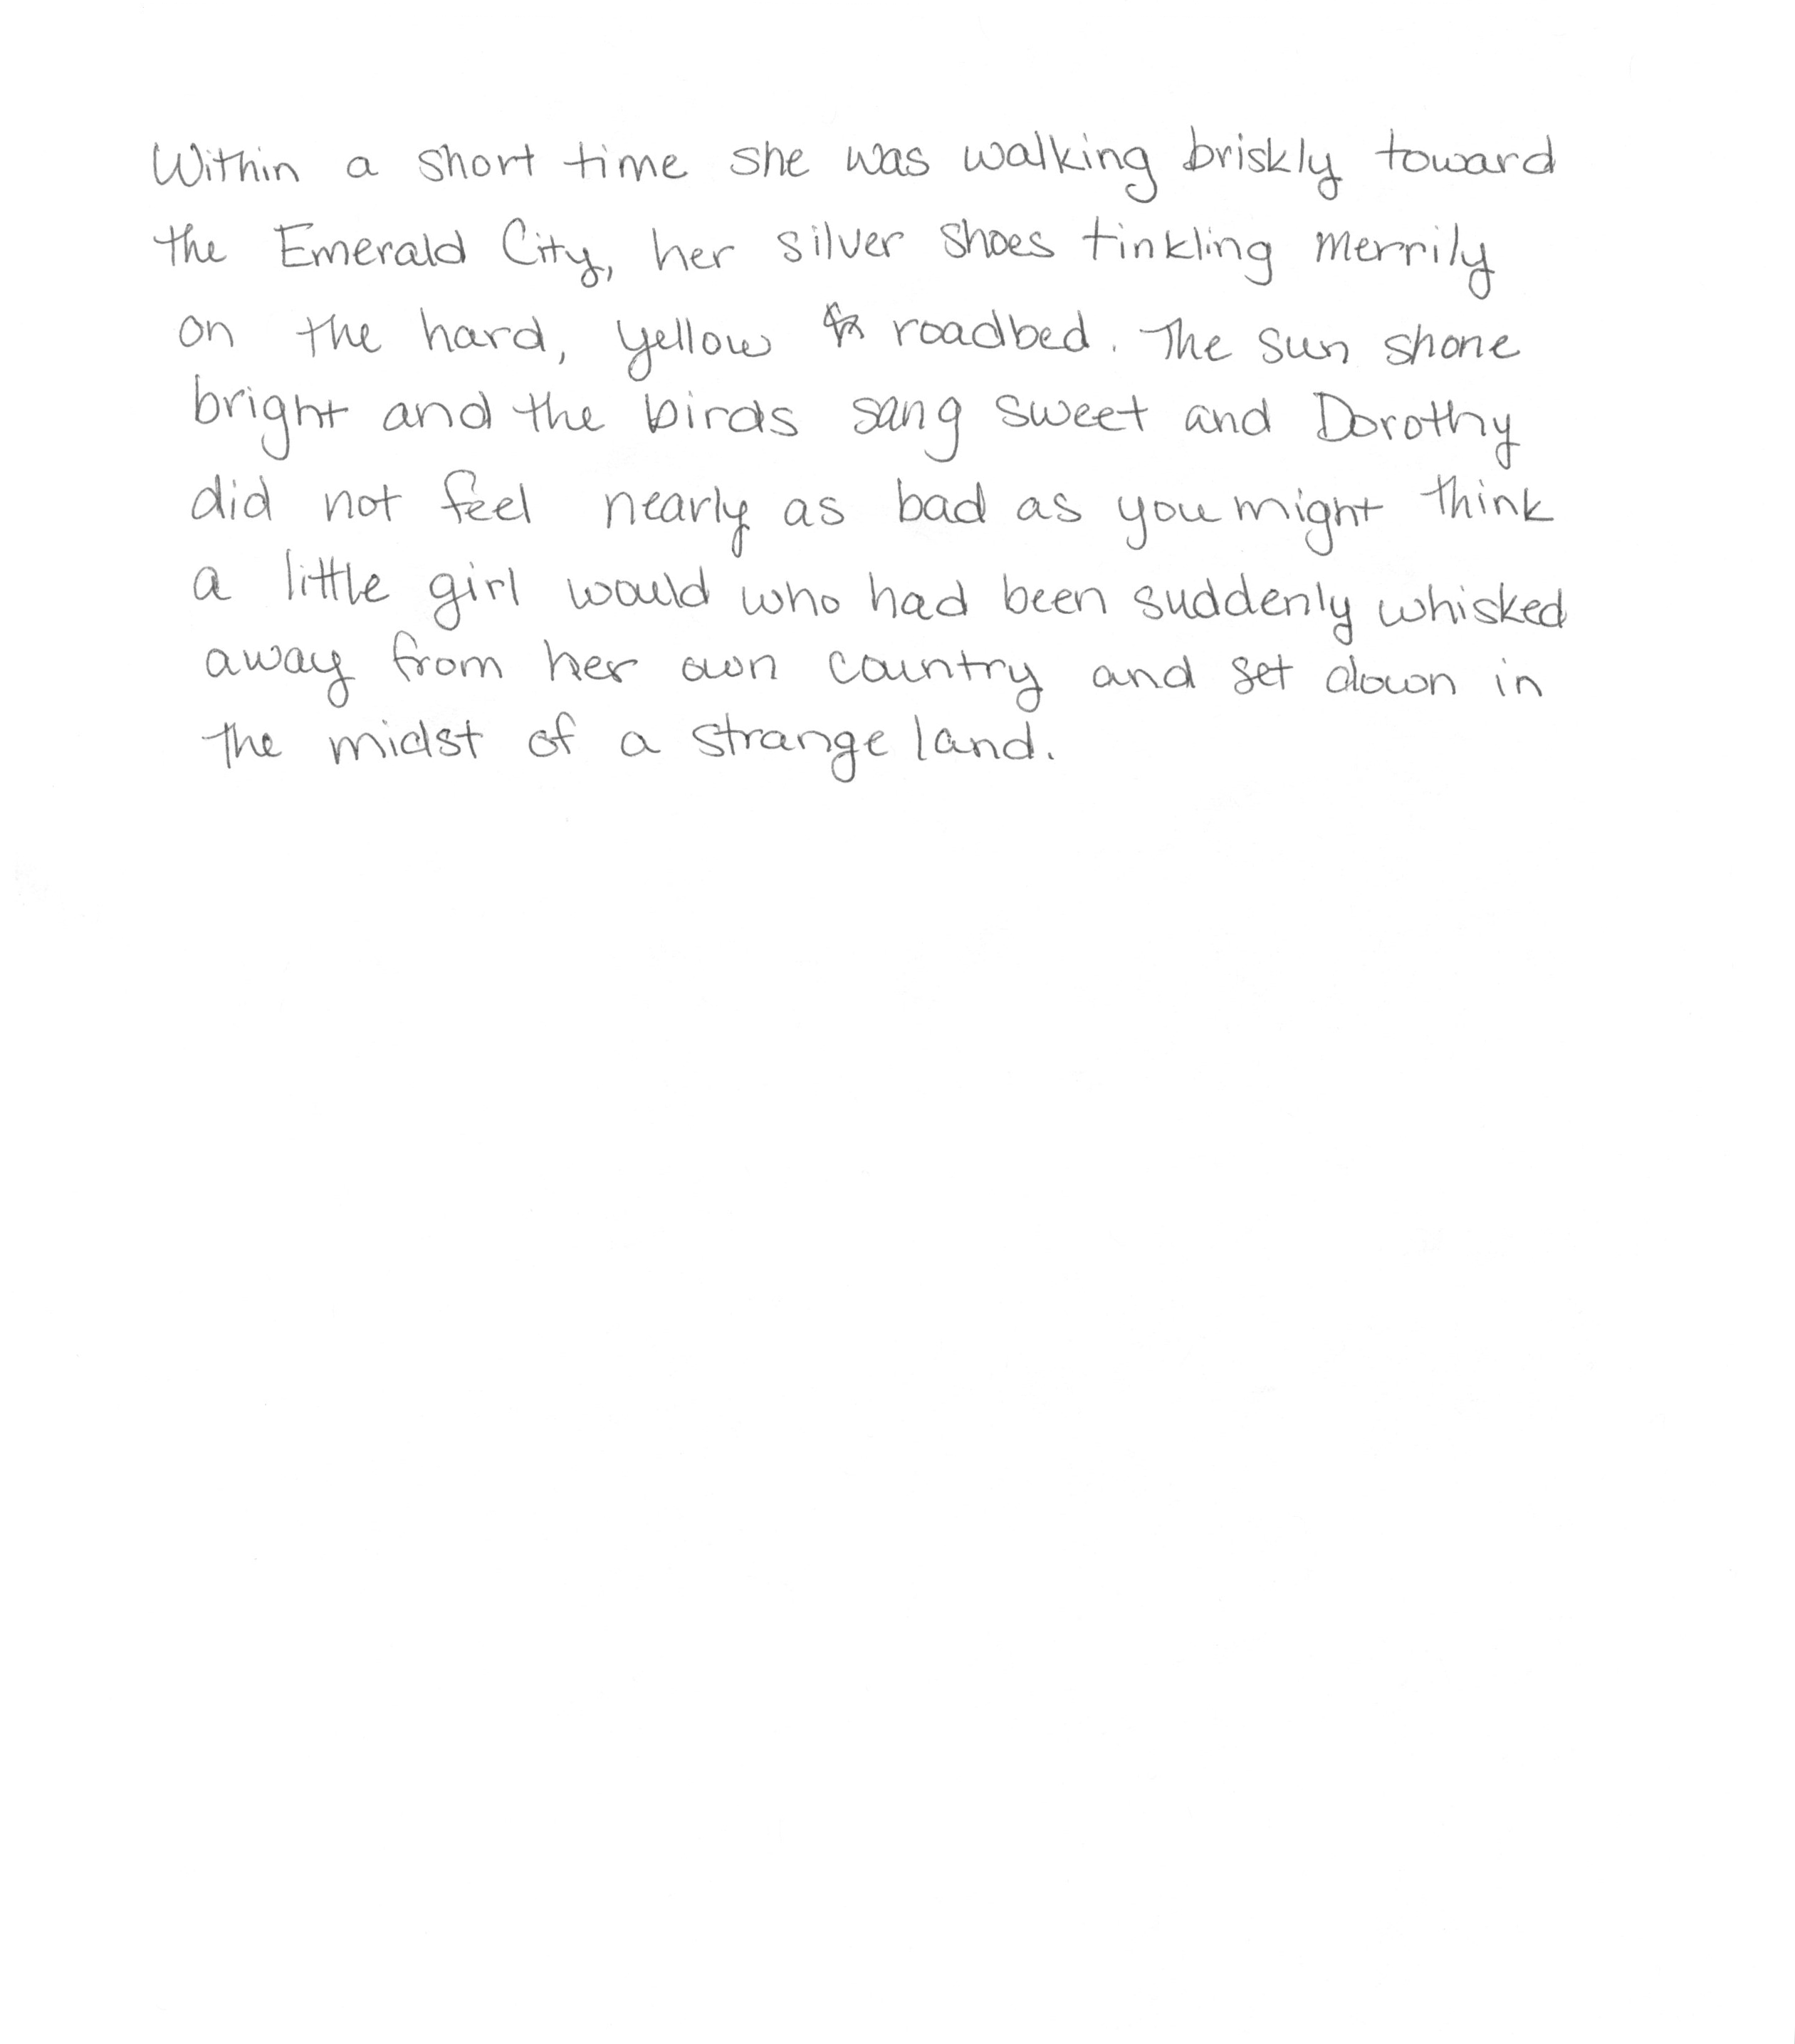 Within a short time she was walking briskly toward
the Emerald City, her silver shoes tinkling merrily
on the hard, yellow roadbed. The sun shone
bright and the birds sang sweet and Dorothy
did not feel nearly as bad as you might think
a little girl would who had been suddenly whisked
away from her own country and set down in
the midst of a strange land.